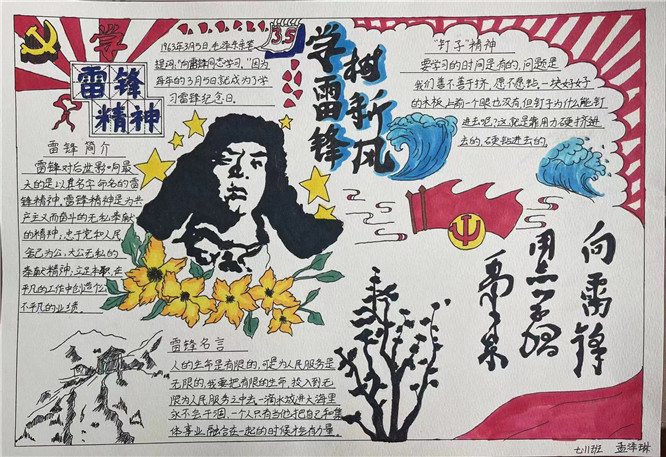 学
雷锋
精神
1963年3月5日,毛泽东亲笔
提词,"向雷锋同志学习。"因为
每年的3月5日就成为了学
习雷锋纪念日。
3.5
学雷锋
树新风
"钉子"精神
要学习的时间是有的,问题是
我们善不善于挤,愿不愿钻,一块好好子
的木板,上面一个眼也没有,但钉子为什么能钉
进去呢?这就是靠用力硬挤进
去的,硬钻进去的。
雷锋简介
雷锋对后世影响最
大的是以其名字命名的雷
锋精神,雷锋精神是为共
产主义而奋斗的无私奉献
的精神,忠于党和人民
舍己为公,大公无私的
奉献精神,立足本职,在
平凡的工作中创造
不平凡的业绩。
雷锋名言
人的生命是有限的,可是为人民服务是
无限的,我要把有限的生命,投入到无
限为人民服务之中去一滴水放进大海里
永不会干涸,一个人只有当他把自己和集
体事业融合在一起的时候才能有力量。
向雷锋
同志学习
毛泽东
七11班